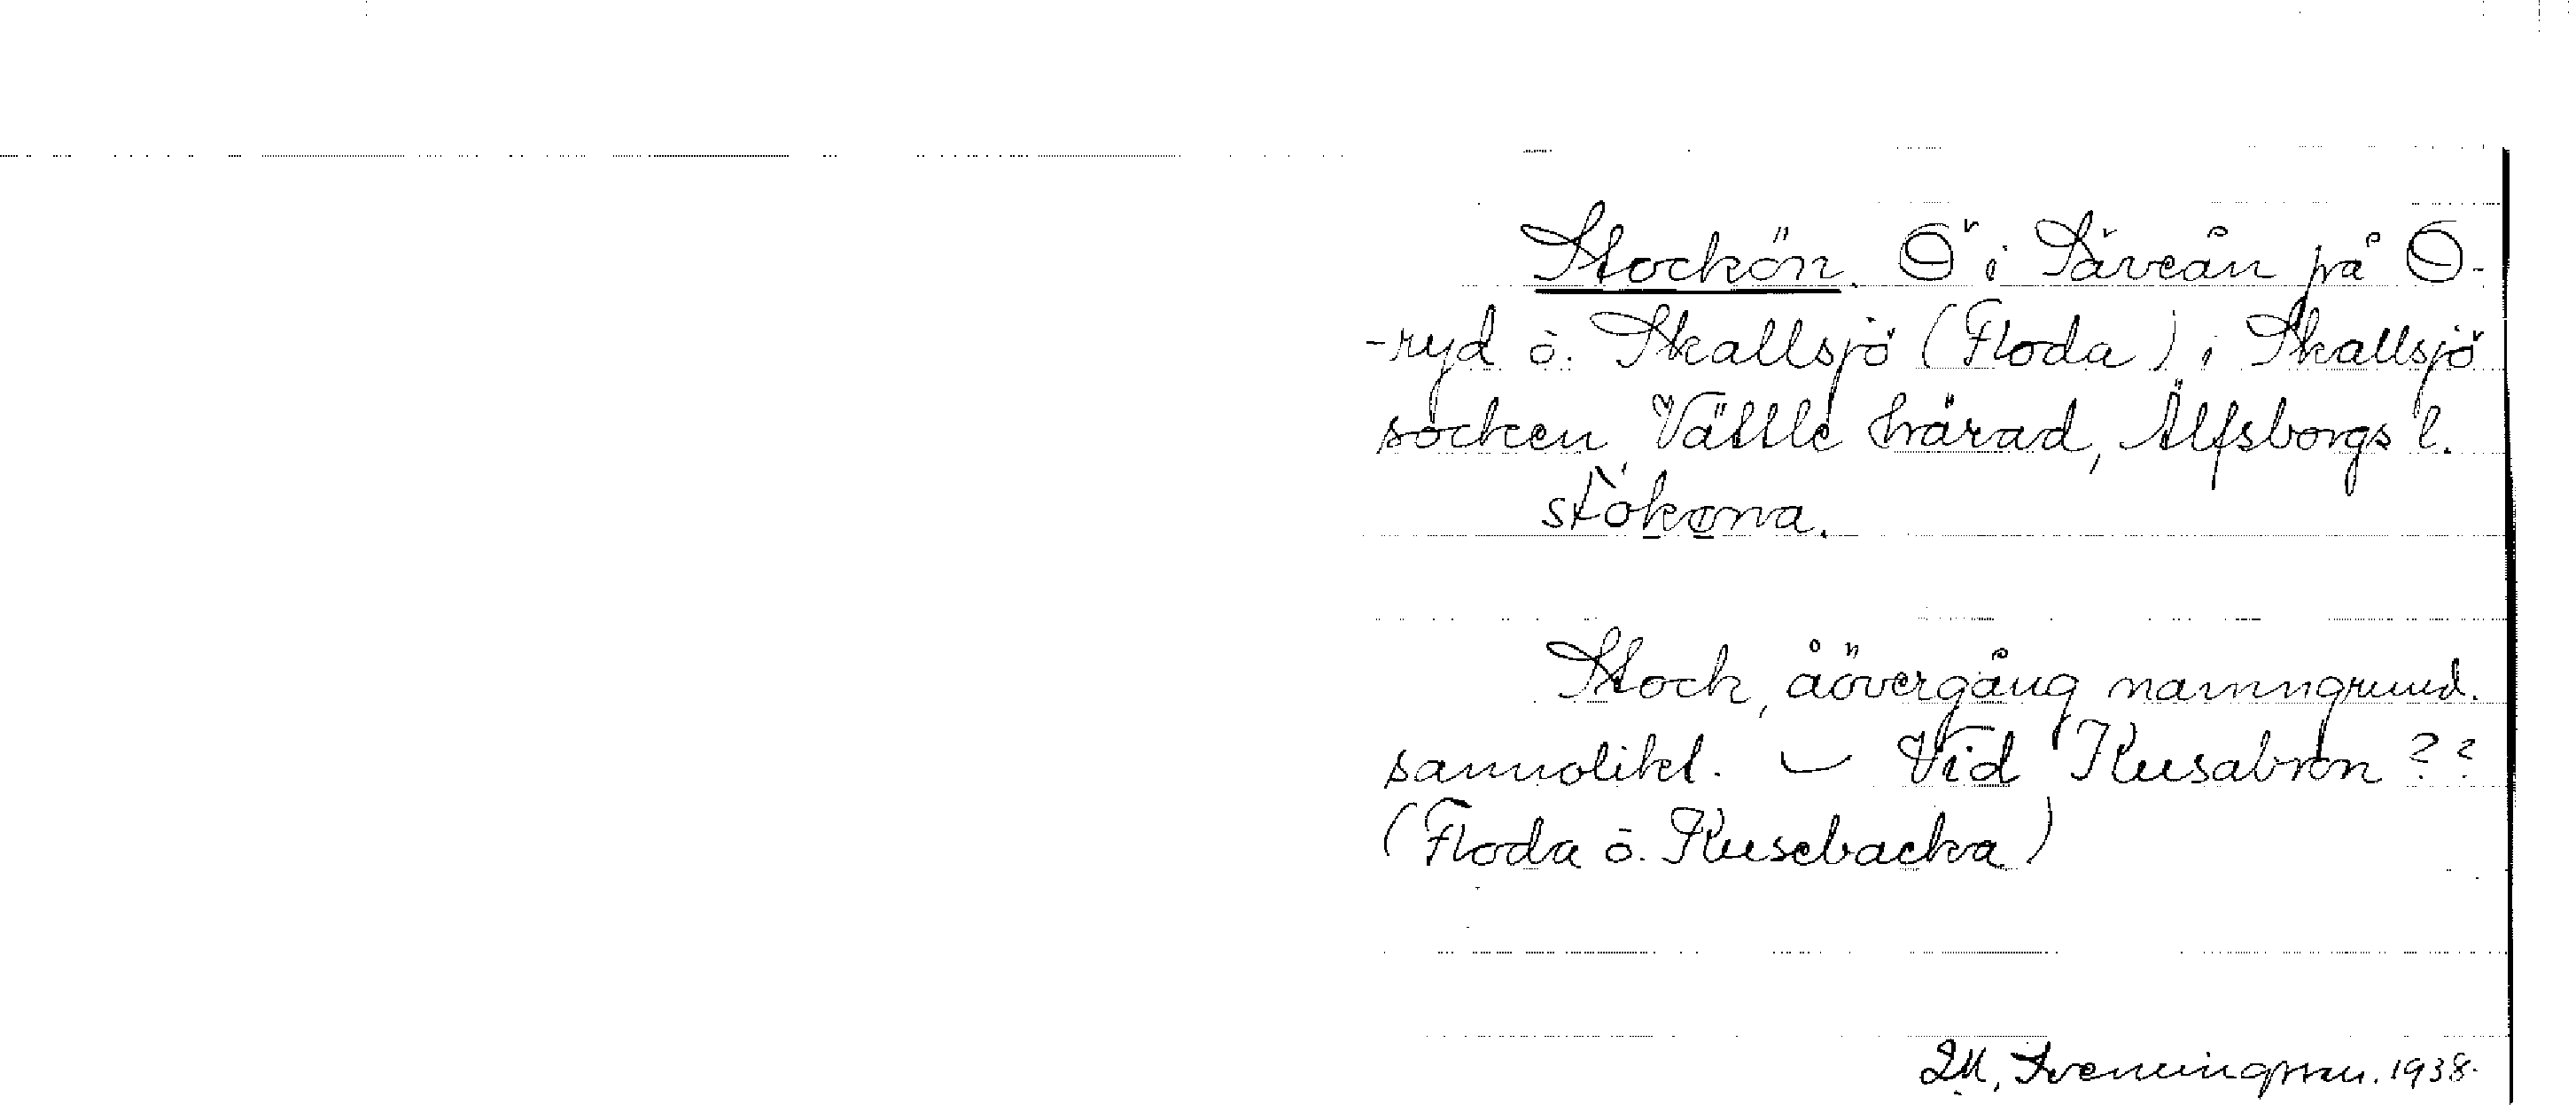 Stockön. Ö i Säveån på Ö-
-ryd ö. Skallsjö (Floda) i Skallsjö
socken, Vättle härad, Älfsborgs l.
stòkǫna.
Stock, åövergång namngrund.
sannolikt. – Vid Kusabron??
(Floda ö. Kusebacka)
Svenningsson. 1938.